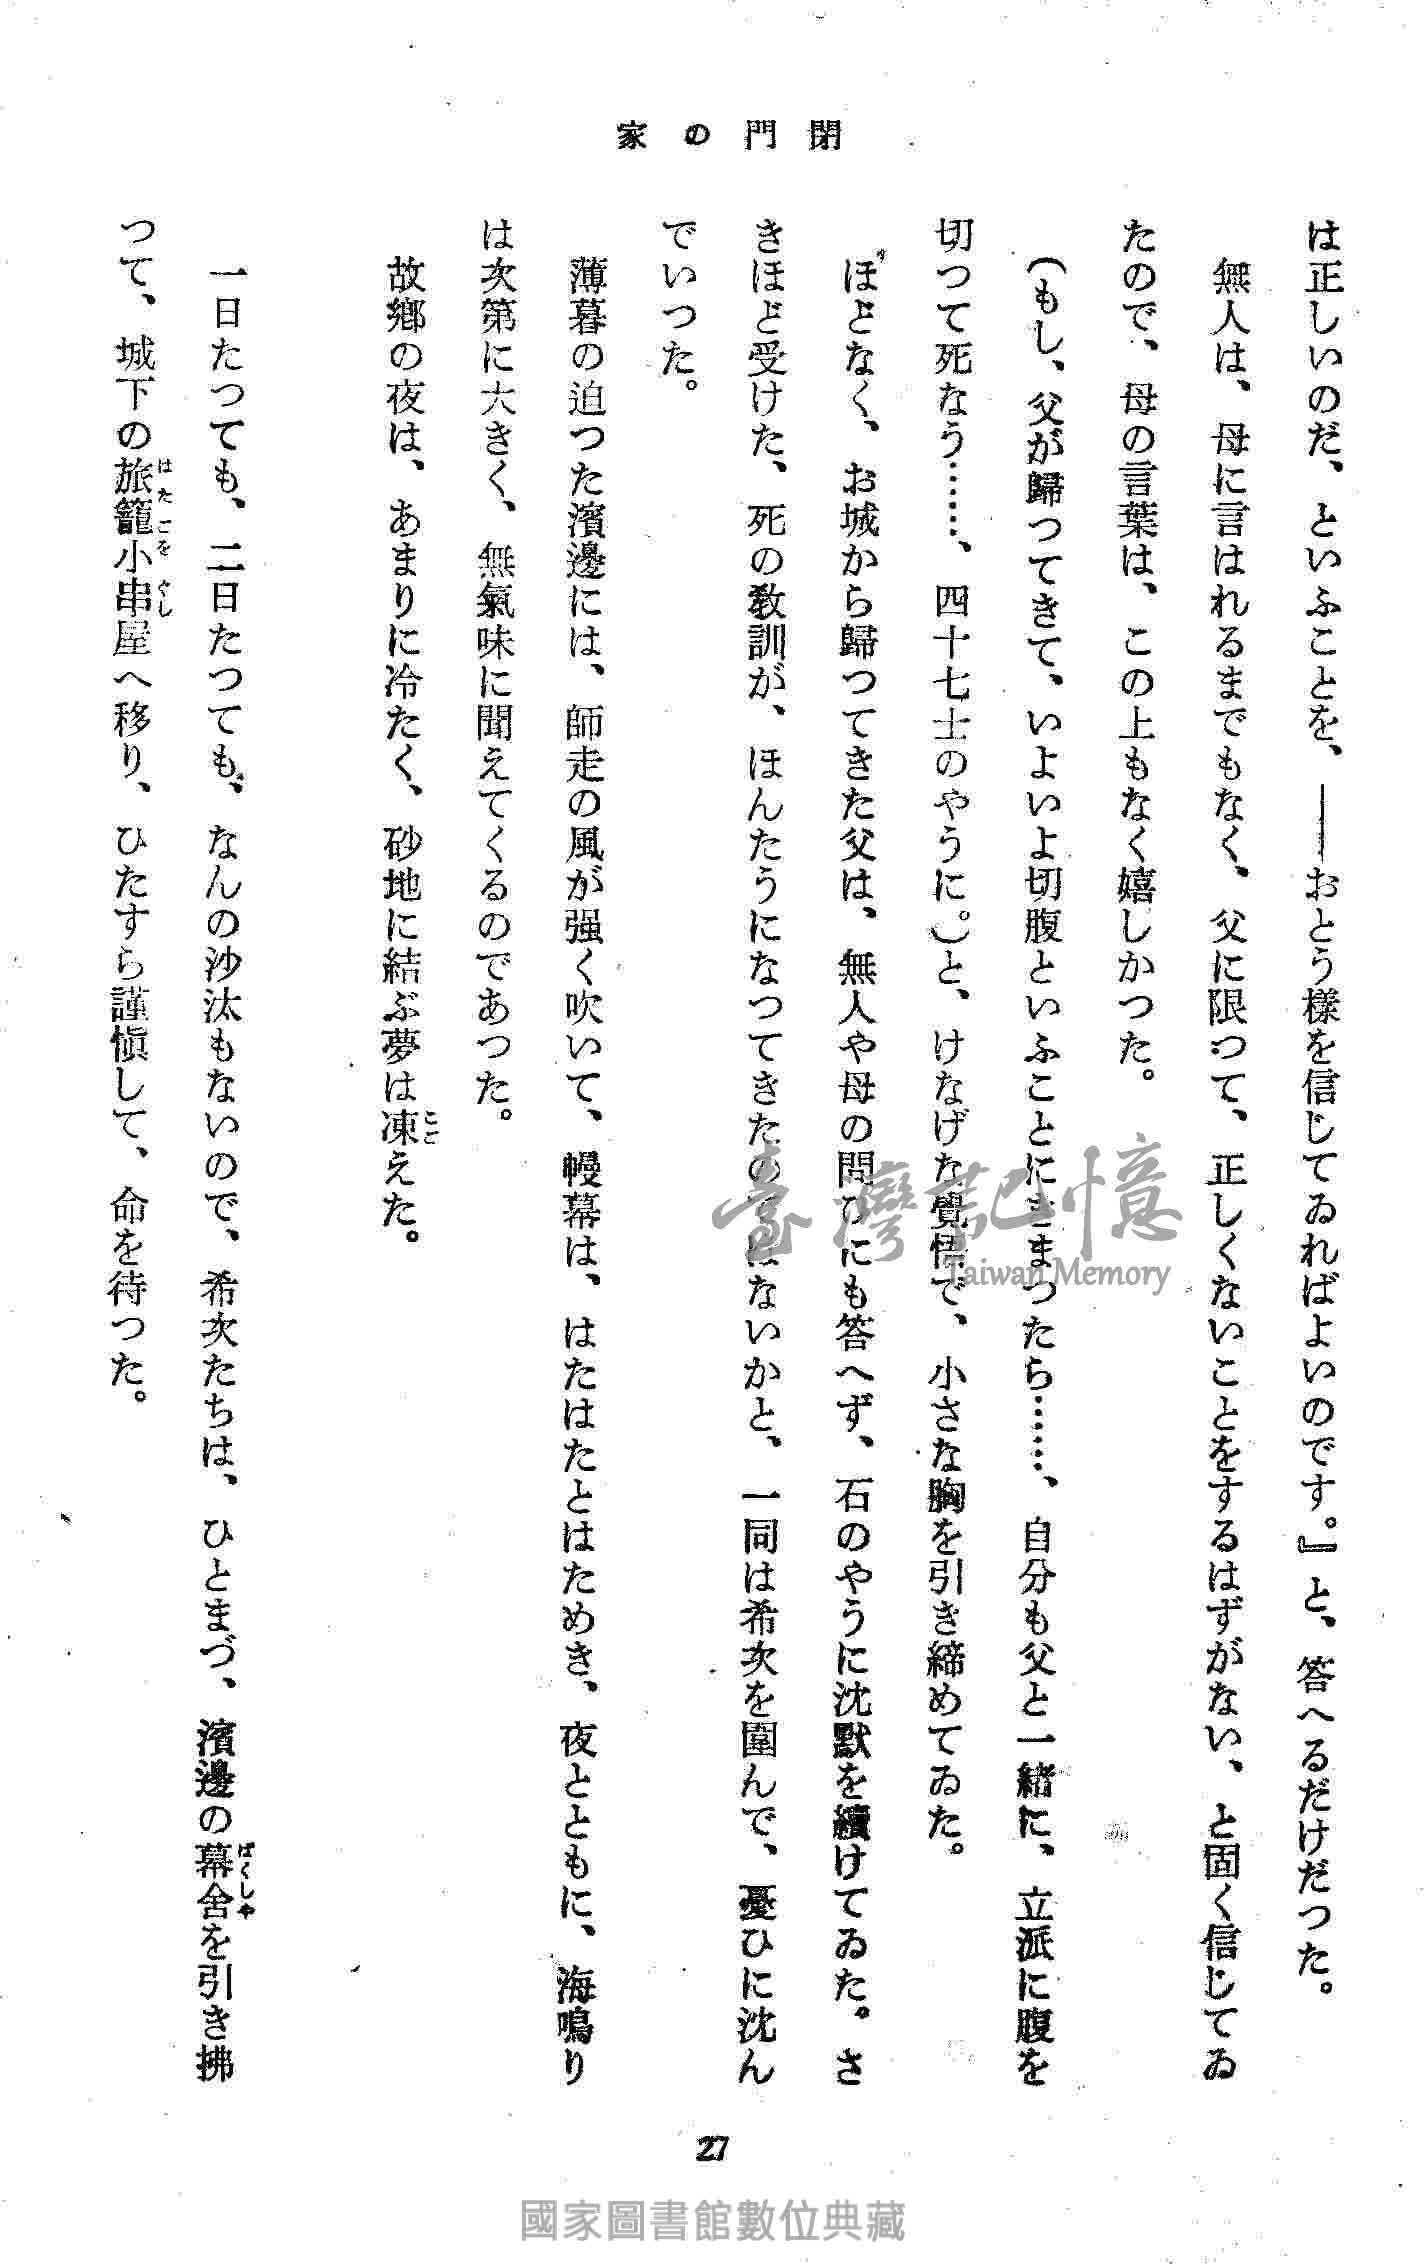 閉門の家
は正しいのだ、といふことを、――おとう樣を信じてゐればよいのです。』と、答へるだけだつた。
無人は、母に言はれるまでもなく、父に限つて、正しくないことをするはずがない、と固く信じてゐ
たので、母の言葉は、この上もなく嬉しかつた。
(もし、父が歸つてきて、いよいよ切腹といふことにきまつたら……、自分も父と一緒に、立派に腹を
切つて死なう……、四十七士のやうに。)と、けなげな覺悟で、小さな胸を引き締めてゐた。
ほどなく、お城から歸つてきた父は、無人や母の問ひにも答へず、石のやうに沈默を續けてゐた。さ
きほど受けた、死の教訓が、ほんたうになつてきたのではないかと、一同は希次を圍んで、憂ひに沈ん
でいつた。
薄暮の迫つた濱邊には、師走の風が强く吹いて、幔幕は、はたはたとはためき、夜とともに、海鳴り
は次第に大きく、無氣味に聞えてくるのであつた。
故鄕の夜は、あまりに冷たく、砂地に結ぶ夢は凍えた。
こご
一日たつても、二日たつても、なんの沙汰もないので、希次たちは、ひとまづ、濱邊の幕舍を引き拂
ばくしや
つて、城下の旅籠小串屋へ移り、ひたすら謹愼して、命を待つた。
はたごをぐし
27
臺灣記憶
Taiwan Memory
國家圖書館數位典藏